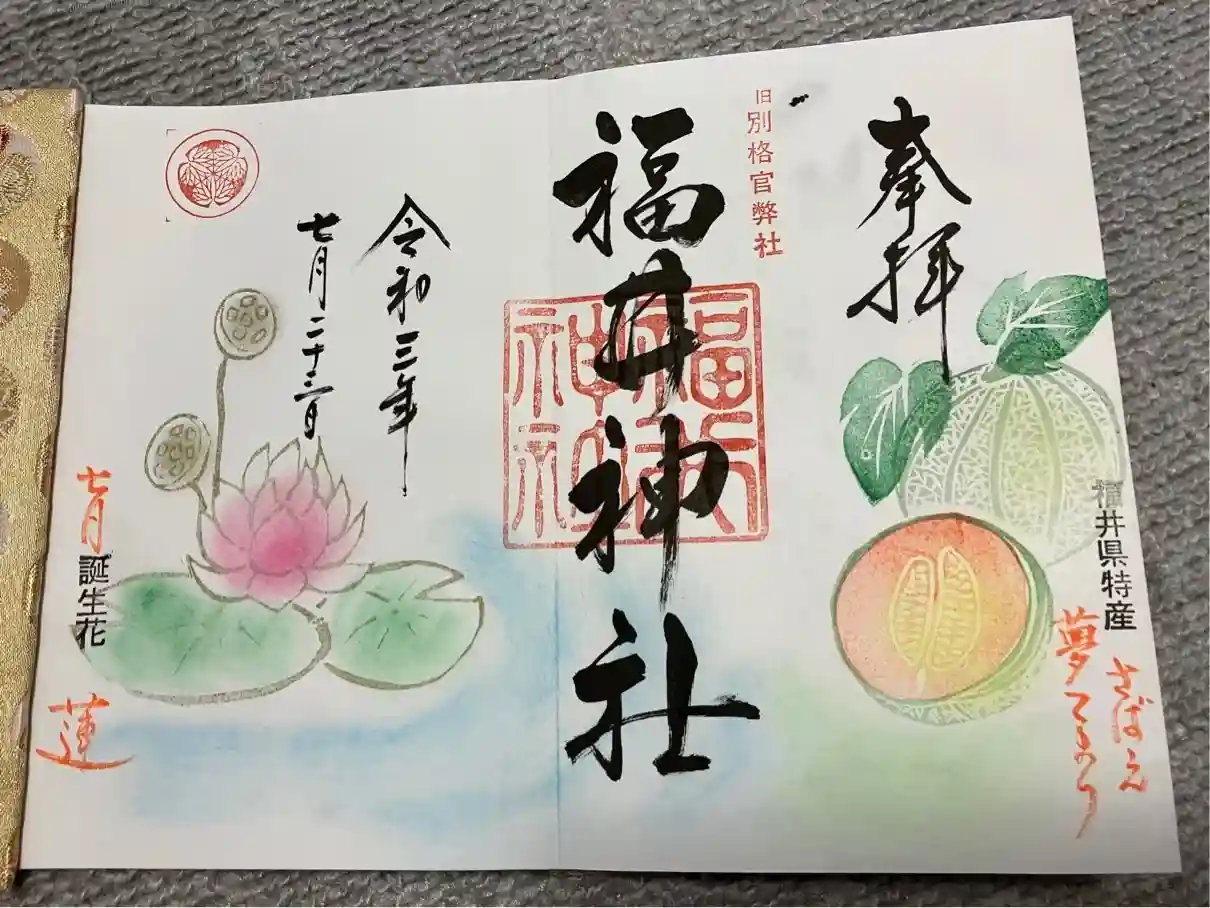 福井県特産
さばえ
夢てまり
奉拝
旧別格官弊社
福井神社
令和三年
七月二十三日
七月
誕生花
蓮